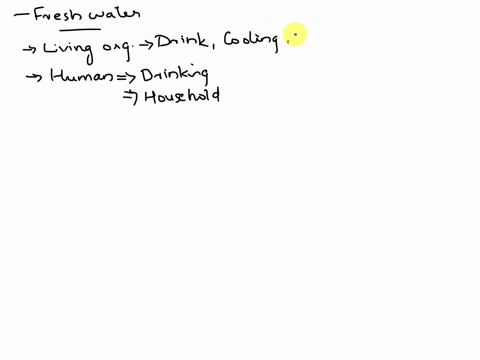 — Fresh water
→ Living org. → Drink, Cooling.
→ Human ⇒ Drinking
⇒ Household